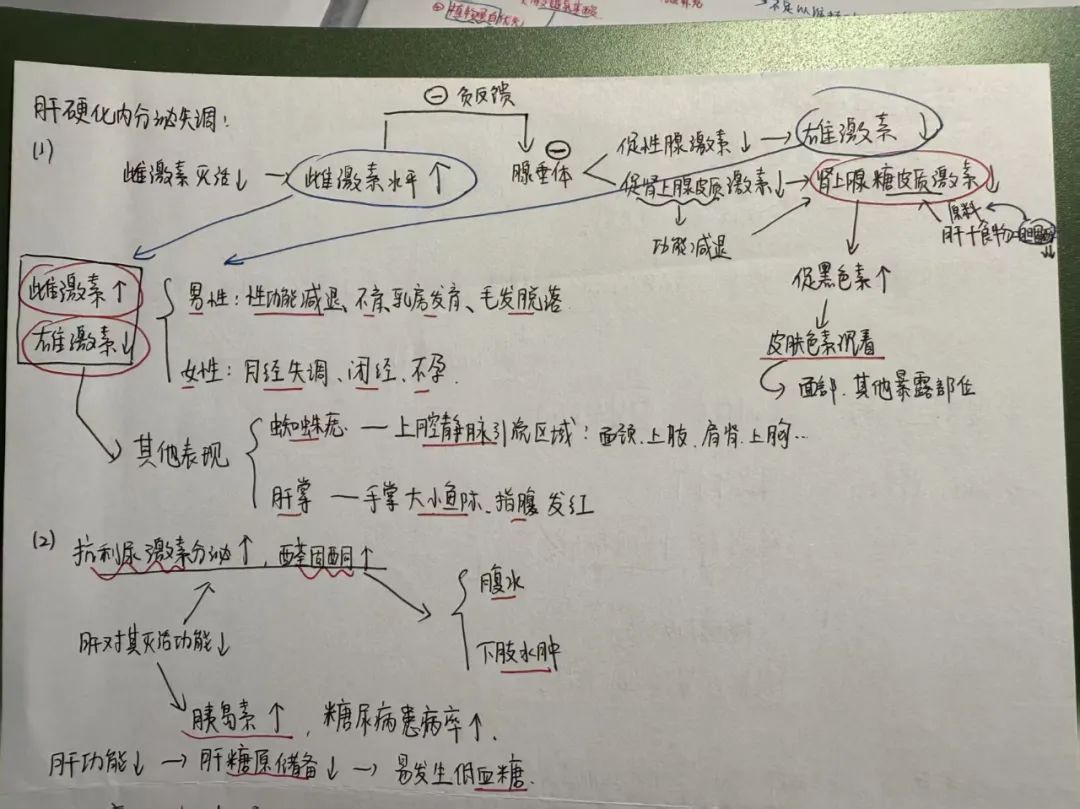 肝硬化内分泌失调：
⊖ 负反馈
(1)
雌激素灭活↓ → 雌激素水平↑
腺垂体 ⊖
促性腺激素↓ → 雄激素↓
促肾上腺皮质激素↓ → 肾上腺糖皮质激素↓
功能减退
原料
肝+食物
促黑色素↑
皮肤色素沉着
面部、其他暴露部位
雌激素↑
雄激素↓
男性：性功能减退、不育、乳房发育、毛发脱落
女性：月经失调、闭经、不孕.
其他表现
蜘蛛痣 — 上腔静脉引流区域：面颈、上肢、肩背、上胸…
肝掌 — 手掌大小鱼际、指腹发红
(2)
抗利尿激素分泌↑，醛固酮↑
腹水
下肢水肿
肝对其灭活功能↓
胰岛素↑，糖尿病患病率↑.
肝功能↓ → 肝糖原储备↓ → 易发生低血糖.